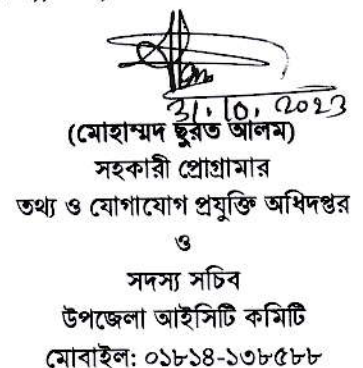 31.10.2023
(মোহাম্মদ ছুরত আলম)
সহকারী প্রোগ্রামার
তথ্য ও যোগাযোগ প্রযুক্তি অধিদপ্তর
ও
সদস্য সচিব
উপজেলা আইসিটি কমিটি
মোবাইল: ০১৮১৪-১৩৮৫৮৮